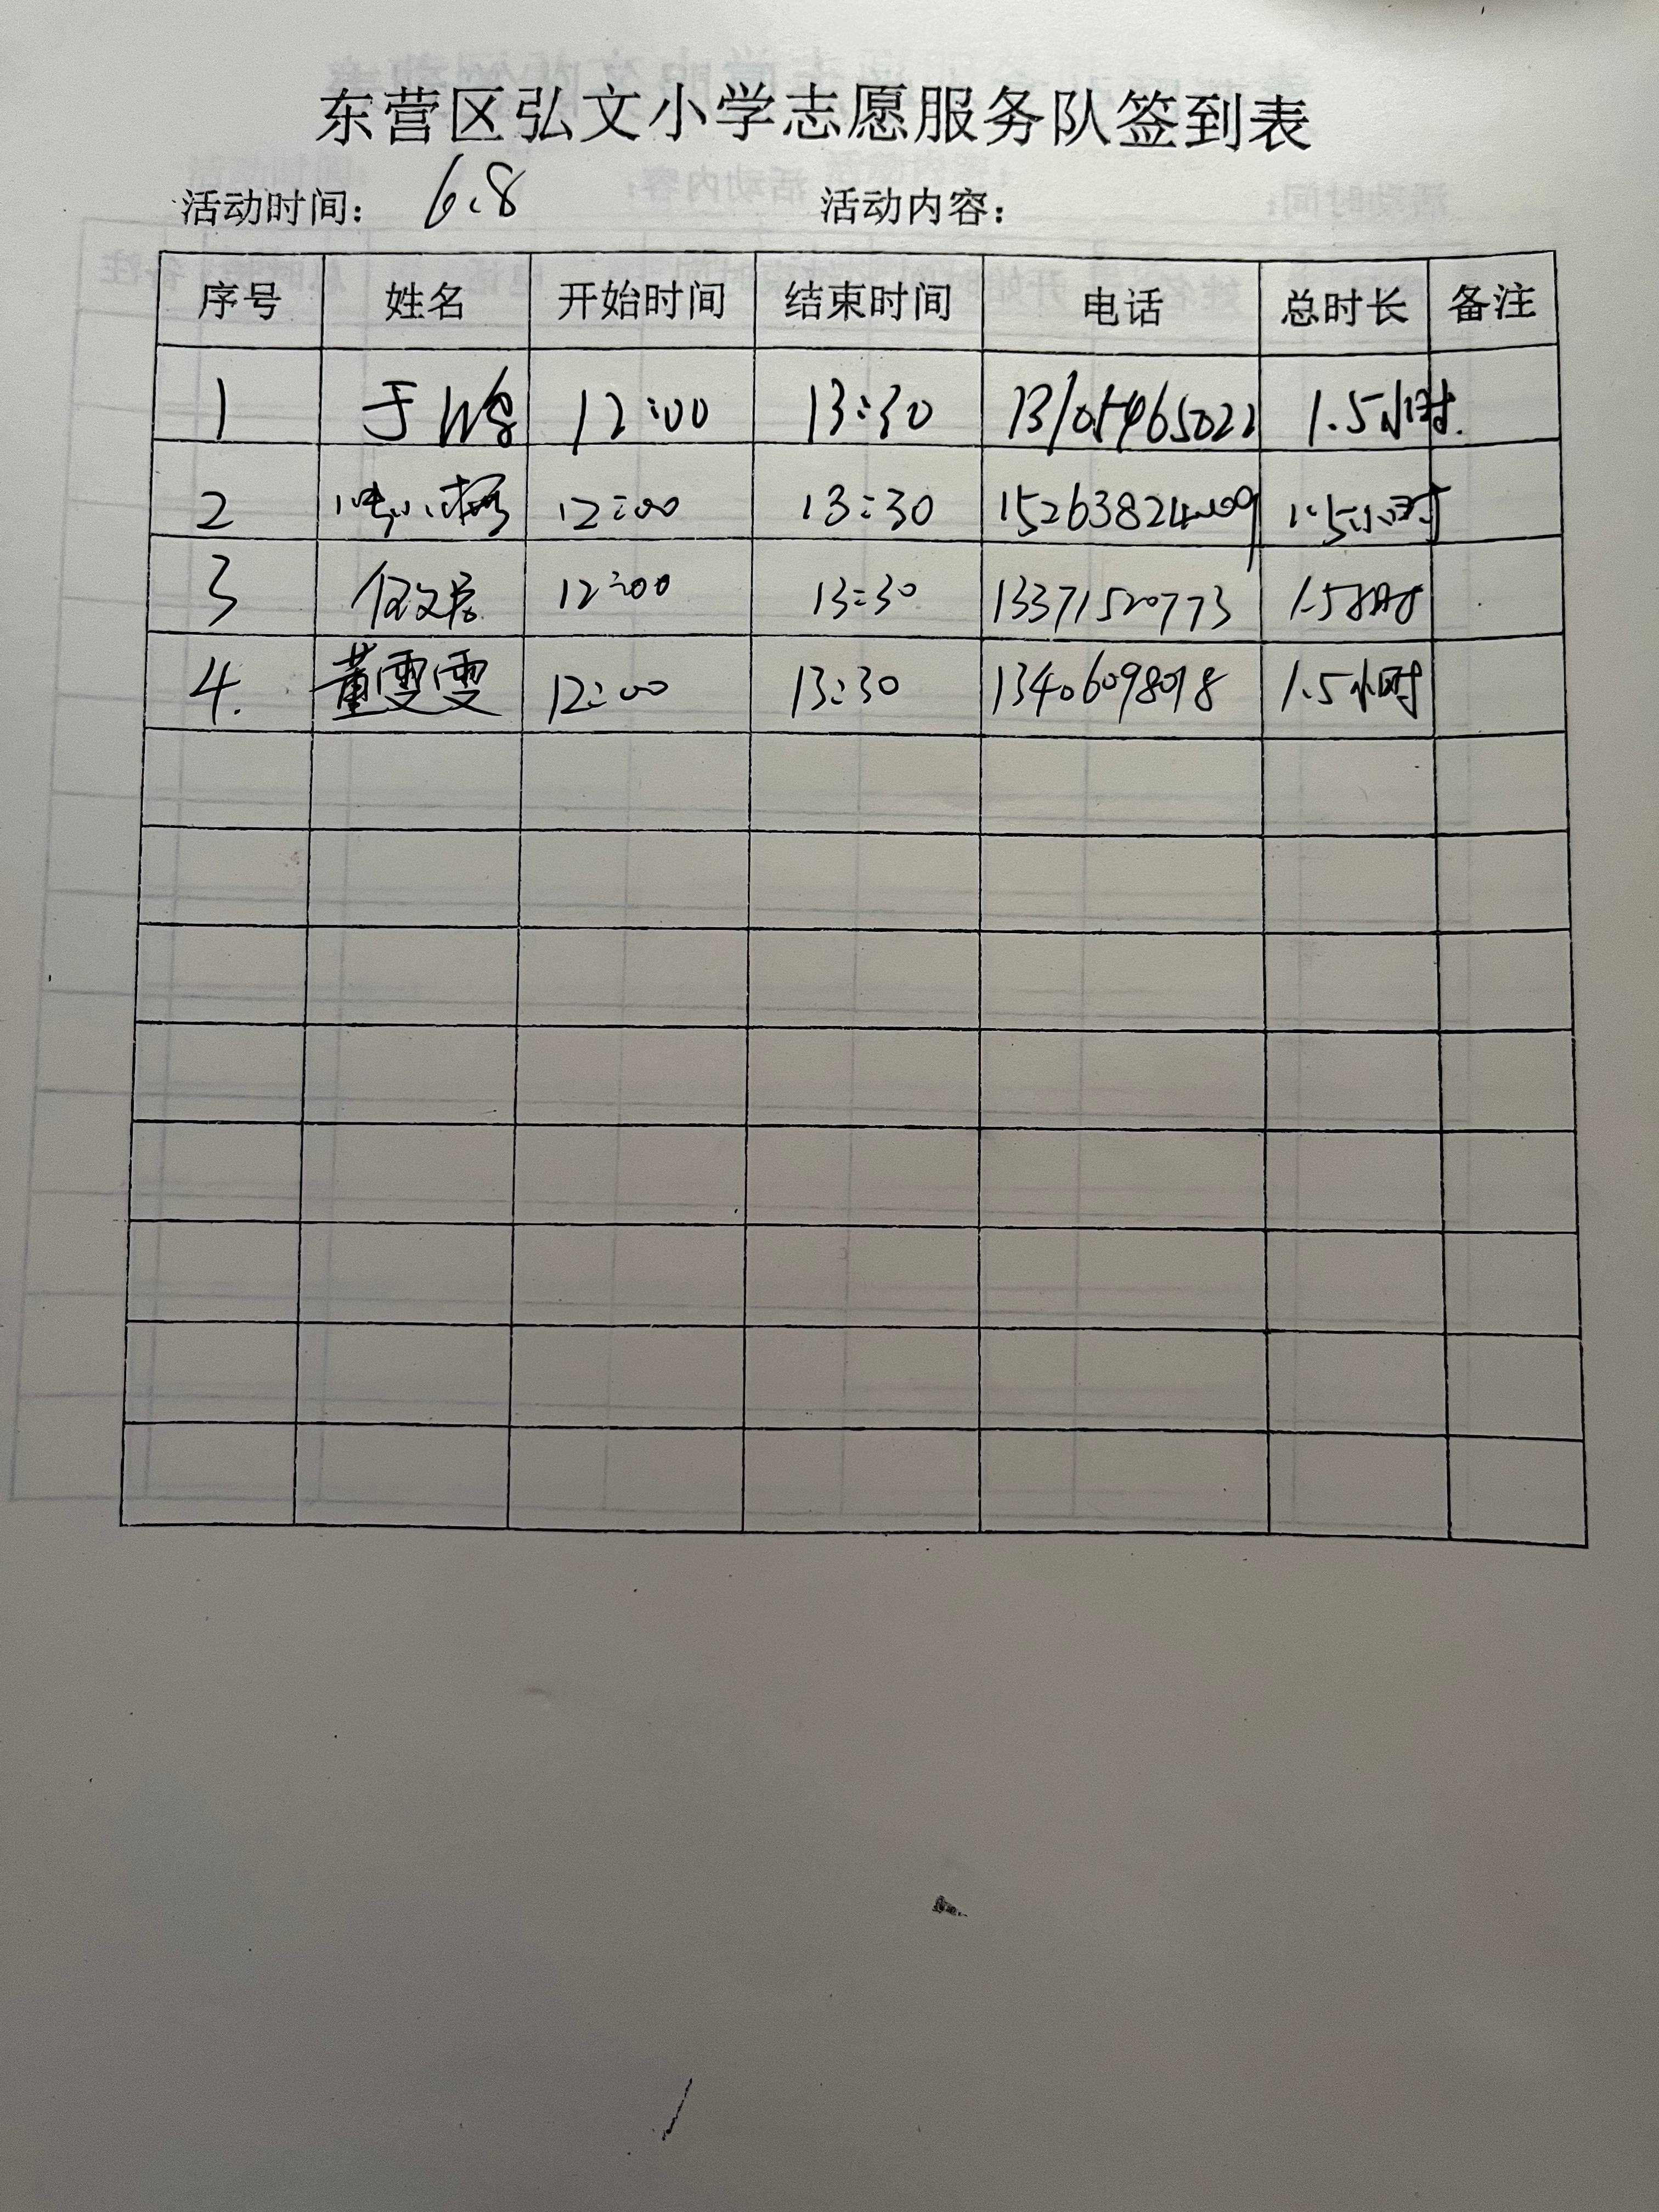 东营区弘文小学志愿服务队签到表
活动时间: 6.8 活动内容:
序号 姓名 开始时间 结束时间 电话 总时长 备注
1 于 12:00 13:30 13105465022 1.5小时.
2 12:00 13:30 1.5小时
3 12:00 13:30 13371520773 1.5小时
4. 董雯雯 12:00 13:30 13406098018 1.5小时